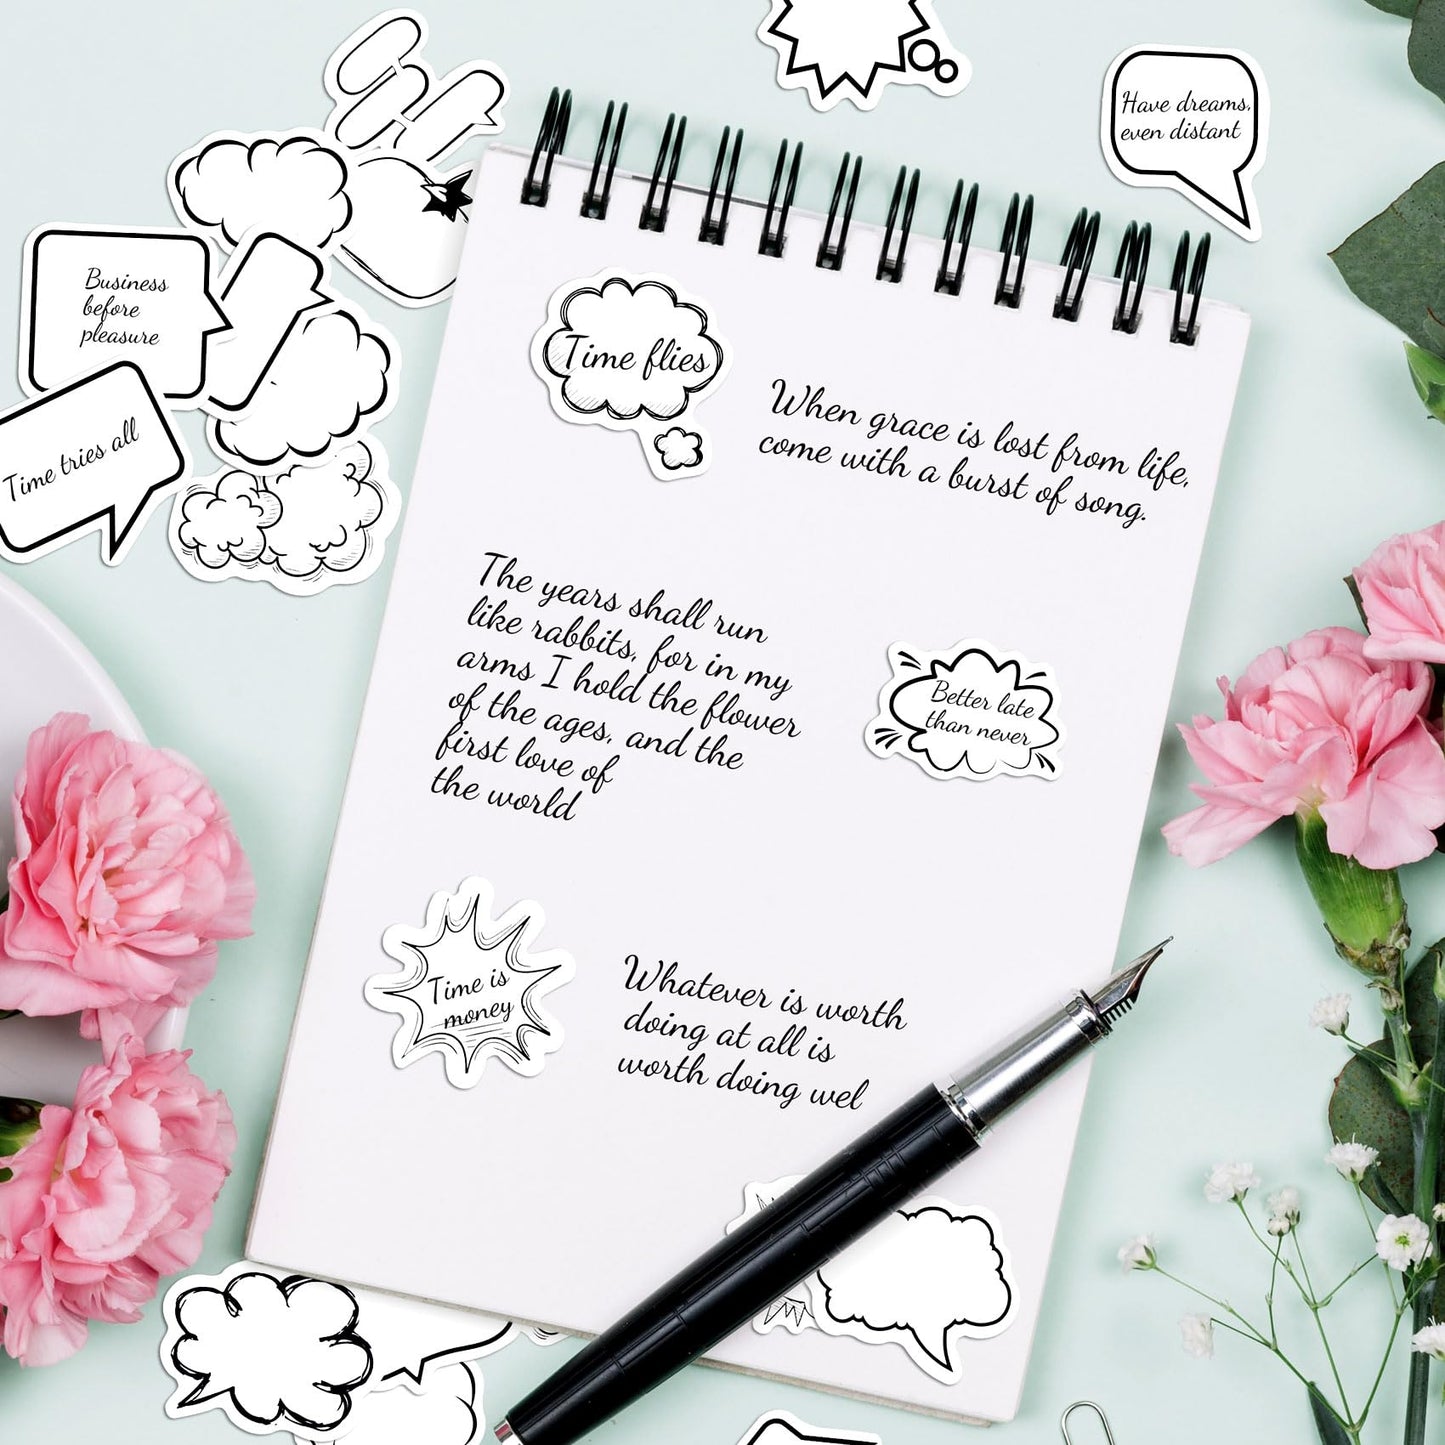 Have dreams,
even distant
Business
before
pleasure
Time tries all
Time flies
When grace is lost from life,
come with a burst of song.
The years shall run
like rabbits, for in my
arms I hold the flower
of the ages, and the
first love of
the world
Better late
than never
Time is
money
Whatever is worth
doing at all is
worth doing wel